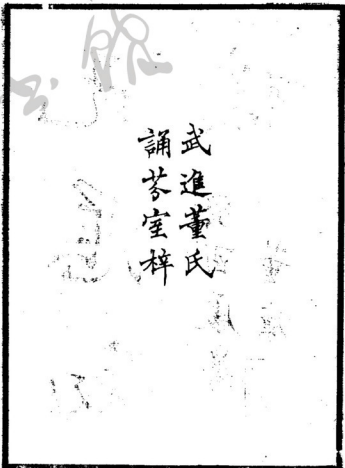 武進董氏
誦芬室梓